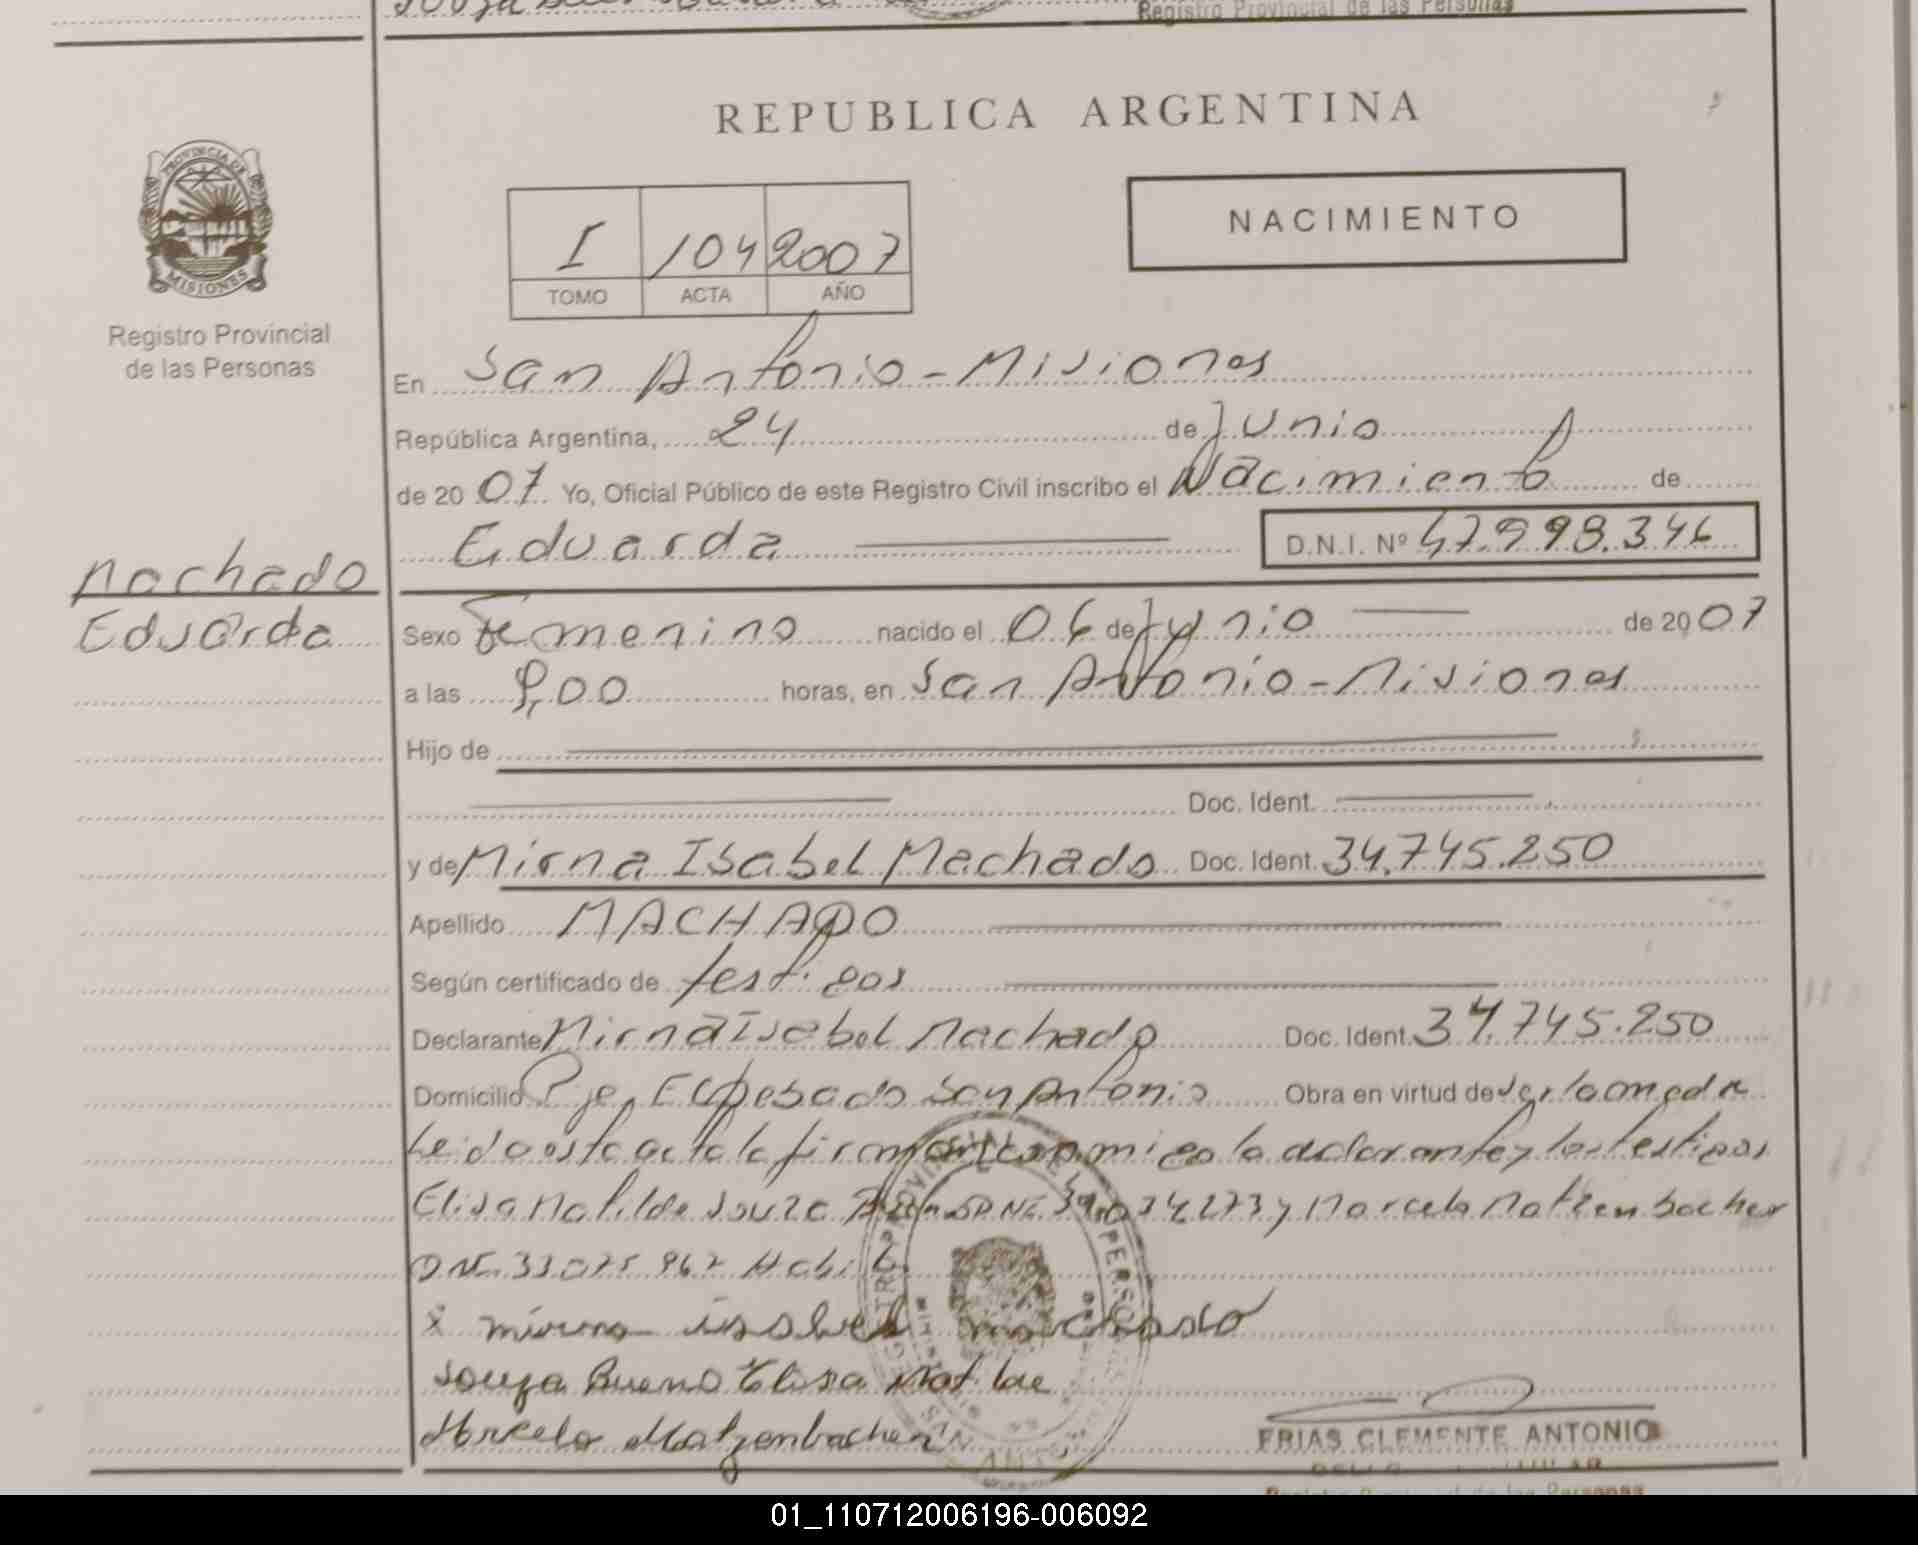 Registro Provincial de las Personas
REPUBLICA ARGENTINA
PROVINCIA DE
MISIONES
Registro Provincial
de las Personas
NACIMIENTO
I 104 2007
TOMO ACTA AÑO
En San Antonio - Misiones
República Argentina, 24 de Junio
de 20 07 Yo, Oficial Público de este Registro Civil inscribo el Nacimiento de
Eduarda D.N.I. Nº 47.998.346
Machado
Eduarda
Sexo Femenino nacido el 06 de Junio de 20 07
a las 9,00 horas, en San Antonio - Misiones
Hijo de
Doc. Ident.
y de Mirna Isabel Machado Doc. Ident. 34.745.250
Apellido MACHADO
Según certificado de testigos
Declarante Mirna Isabel Machado Doc. Ident. 34.745.250
Domicilio Pje. El Pesado San Antonio Obra en virtud de ser la madre
Leida esta acta la firman conmigo la declarante y los testigos
Elisa Matilde Souza y Marcelo Matzenbacher
mirna issabel machado
Souza Bueno Elisa Matilde
Marcelo Matzenbacher
FRIAS CLEMENTE ANTONIO
Registro Provincial de las Personas
01_110712006196-006092